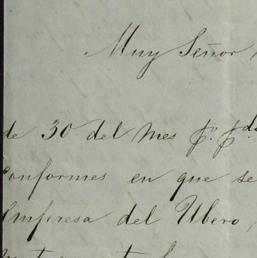 Muy Señor
de 30 del mes p.º p.do
Conformes en que se
Empresa del Ubero,